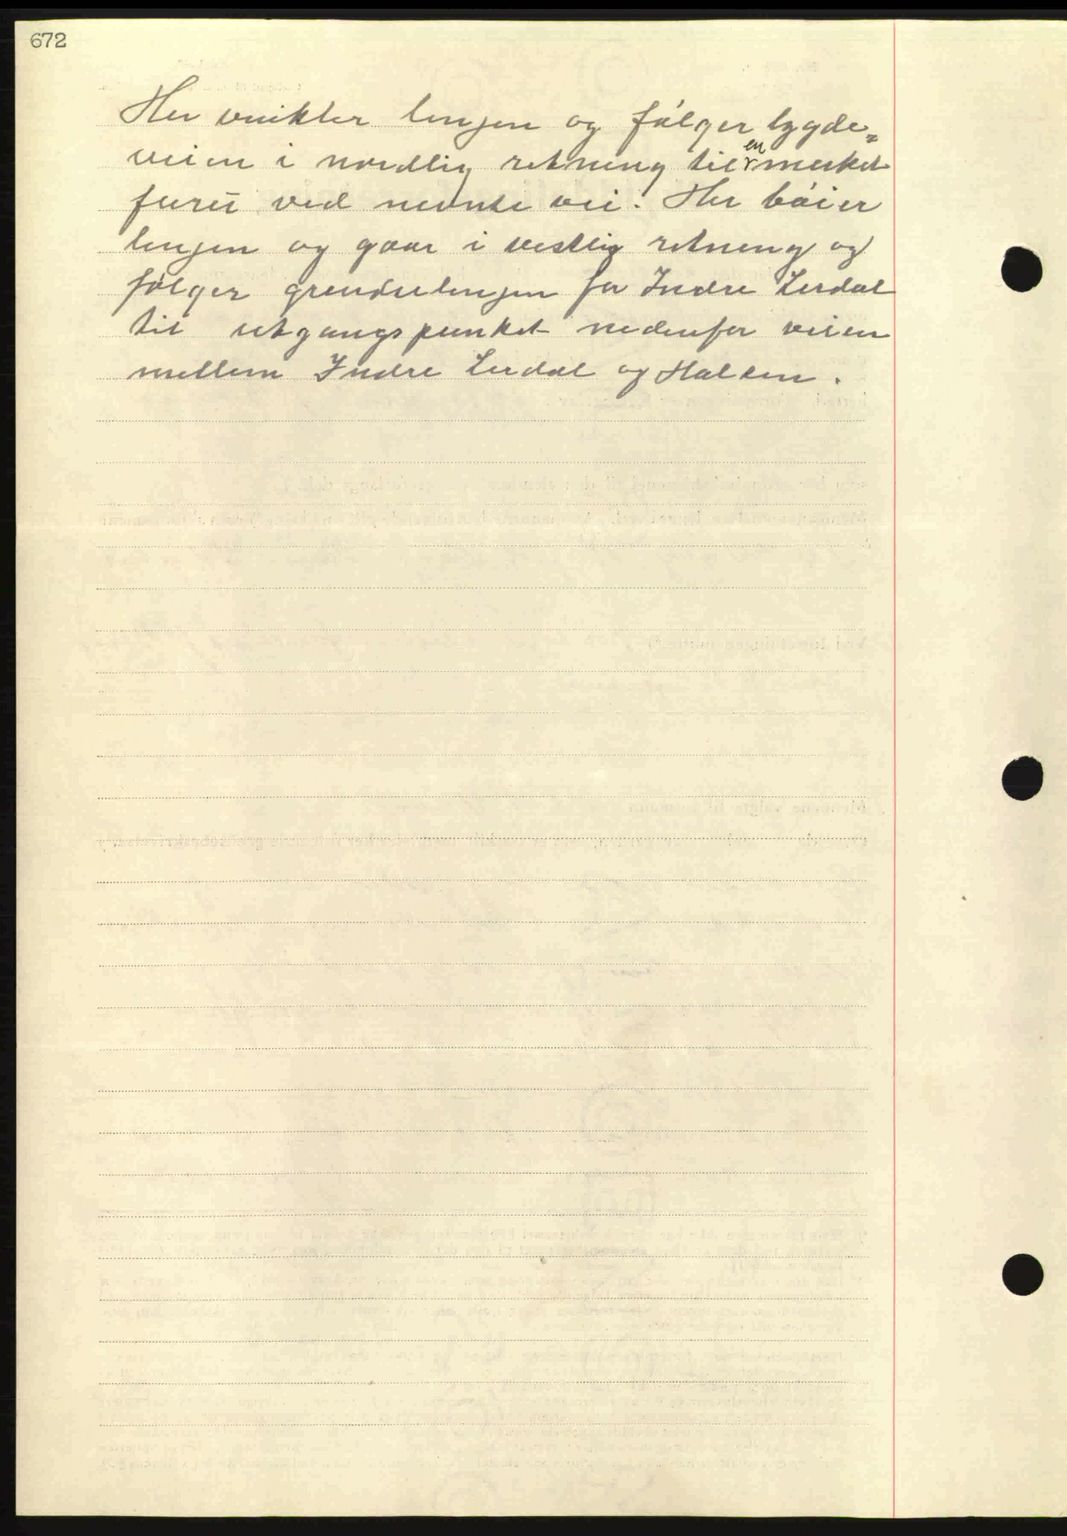 672
Her vinkler linjen og følger bygde=
veien i nordlig retning til en merket
furu ved nevnte vei. Her bøier
linjen og gaar i vestlig retning og
følger grenselinjen for Indre Lerdal
til utgangspunktet nedenfor veien
mellem Indre Lerdal og Halden.